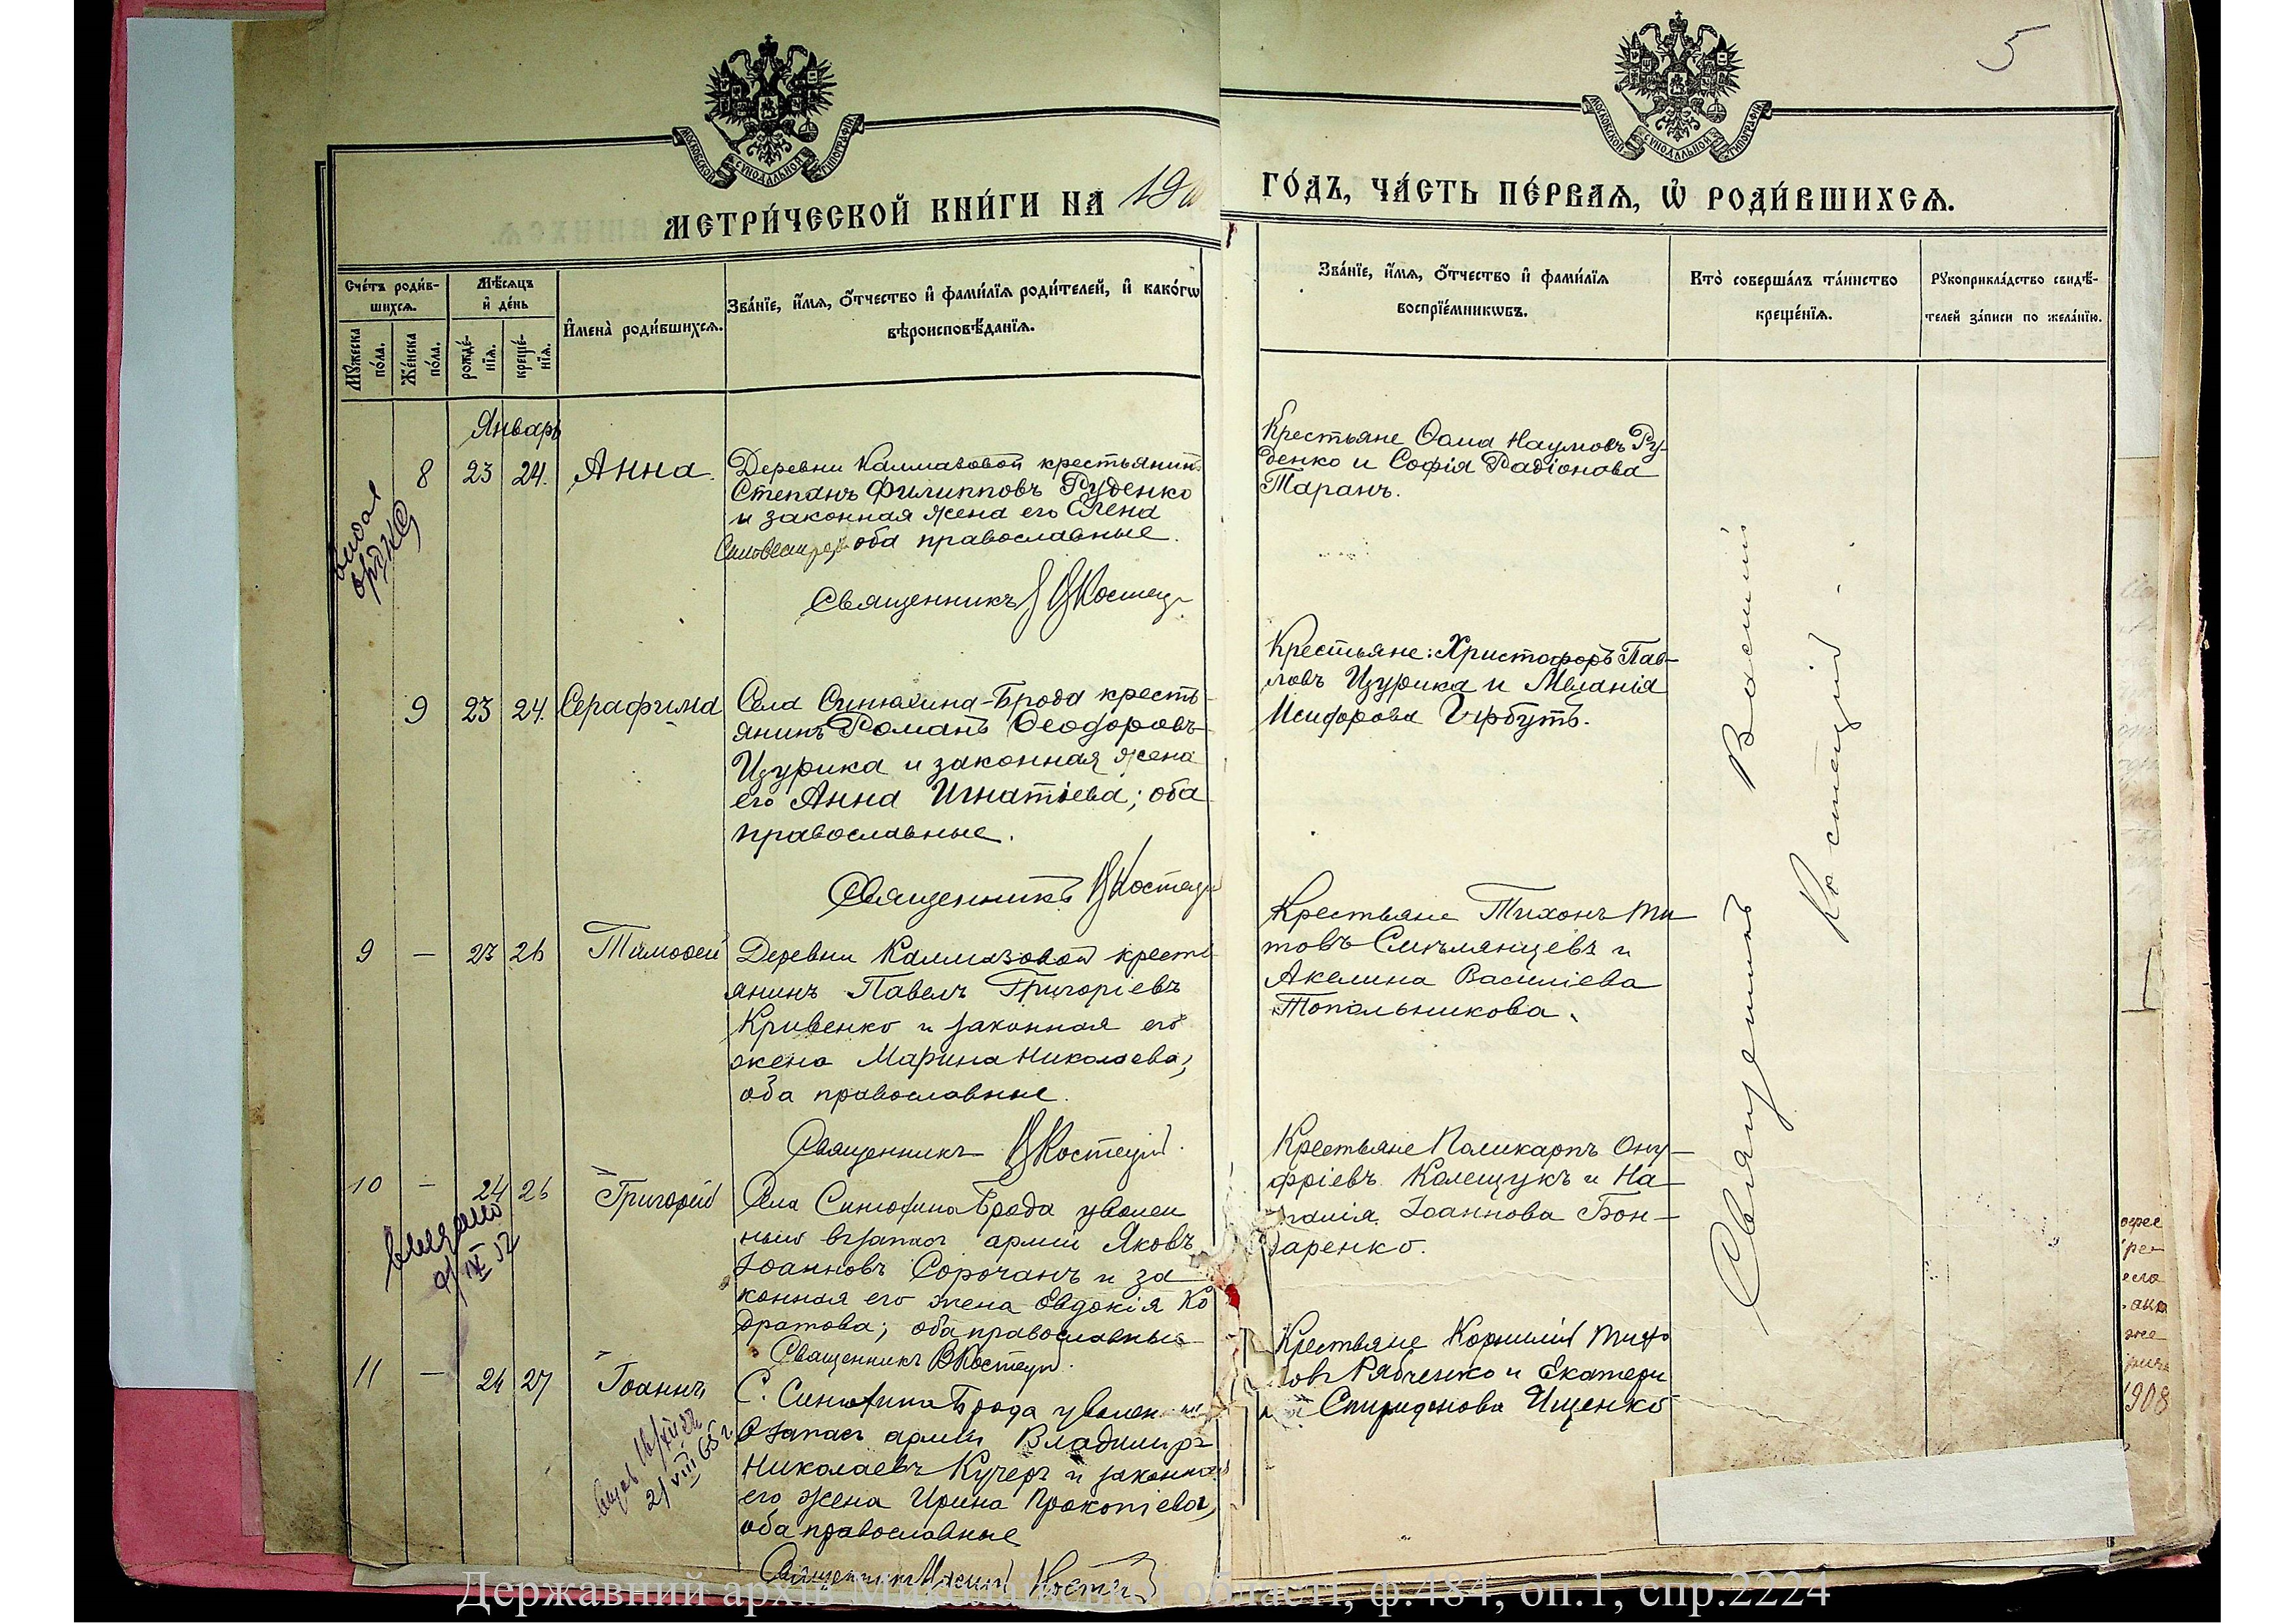 5
МОСКОВСКОЙ СѴНОДАЛЬНОЙ ТИПОГРАФІИ
МОСКОВСКОЙ СѴНОДАЛЬНОЙ ТИПОГРАФІИ
МЕТРИ́ЧЕСКОЙ КНИ́ГИ НА 19
ГО́ДЪ, ЧА́СТЬ ПЕ́РВАѦ, Ѿ РОДИ́ВШИХСѦ.
Сче́тъ роди́в-
шихсѧ.
Мꙋ́жеска по́ла.
Же́нска по́ла.
Мѣ́сѧцъ и҆ де́нь
рожде́-нїѧ.
креще́-нїѧ.
И҆мена̀ роди́вшихсѧ.
Зва́нїе, и҆́мѧ, ѻ҆́тчество и҆ фами́лїѧ роди́телей, и҆ како́гѡ
вѣроисповѣ́данїѧ.
Зва́нїе, и҆́мѧ, ѻ҆́тчество и҆ фами́лїѧ
воспрїе́мникѡвъ.
Кто̀ соверша́лъ та́инство
креще́нїѧ.
Рꙋкоприкла́дство свидѣ́-
телей за́писи по жела́нїю.
Январь
8 23 24. Анна.
Деревни Калмазовой крестьянинъ
Степанъ Филипповъ Руденко
и законная жена его Елена
оба православные.
Священникъ В Костец
Крестьяне Ѳома Наумовъ Ру-
денко и Софія Радіонова
Таранъ.
9 23 24. Серафима
Села Синюхина-Брода кресть-
янинъ Романъ Ѳеодоровъ
Цурика и законная жена
его Анна Игнатіева; оба
православные.
Священникъ В Костец
Крестьяне: Христофоръ Пав-
ловъ Цурика и Меланія
Исидорова Гарбутъ.
9 – 23 26 Тимоѳей
Деревни Калмазовой кресть
янинъ Павелъ Григоріевъ
Кривенко и законная его
жена Марина Николаева;
оба православные.
Священникъ В Костецкій.
Крестьяне Тихонъ Ти
товъ Смѣлянцевъ и
Акелина Василіева
Топольникова.
10 – 24 26 Григорій
Села Синюхина Брода уволен
ный въ запасъ арміи Яковъ
Іоанновъ Сорочанъ и за
конная его жена Евдокія Ко
дратова; оба православные
Священникъ В Костецкій.
Крестьяне Поликарпъ Ону-
фріевъ Колещукъ и На-
талія Іоаннова Бон-
даренко.
IX 52
11 – 24 27 Іоаннъ
С. Синюхина Брода уволен
въ запасъ арміи Владимиръ
Николаевъ Кучеръ и законная
его жена Ирина Прокопіева,
оба православные
Священникъ
Крестьяне Корнилій Тито
овъ Рябченко и Екатери
на Спиридонова Ищенко
21 VIII 65 г
Священникъ Василій
Костецкій.
1908
Державний архів Миколаївської області, ф.484, оп.1, спр.2224